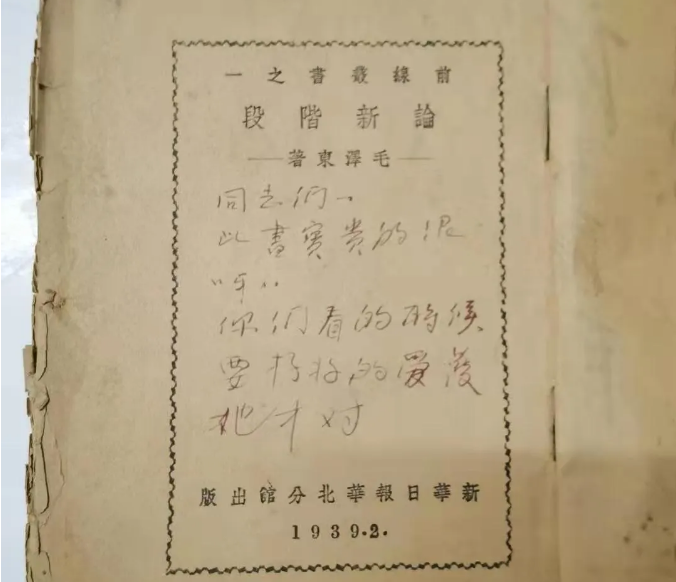 前線叢書之一
論新階段
毛澤東著
同志们
此書寶貴的很
呀
你們看的時候
要好好的愛護
他才对
新華日報華北分館出版
1939.2.